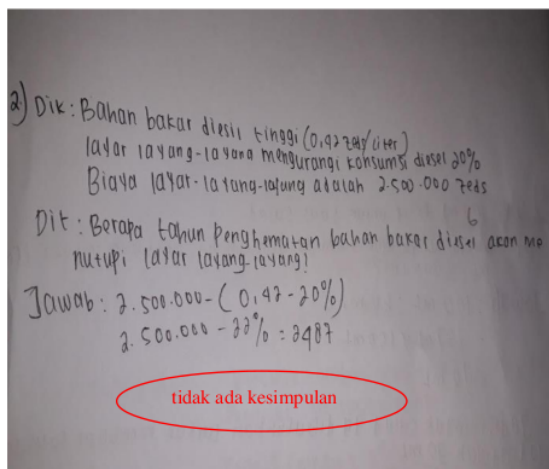 2.) Dik : Bahan bakar diesil tinggi (0,42 zeds/liter)
layar layang-layang mengurangi konsumsi diesel 20%
Biaya layar-layang-layang adalah 2.500.000 zeds
Dit : Berapa tahun penghematan bahan bakar diesel akan me
nutupi layar layang-layang?
Jawab : 2.500.000 - (0,42 - 20%)
2.500.000 - 22% = 2487
tidak ada kesimpulan